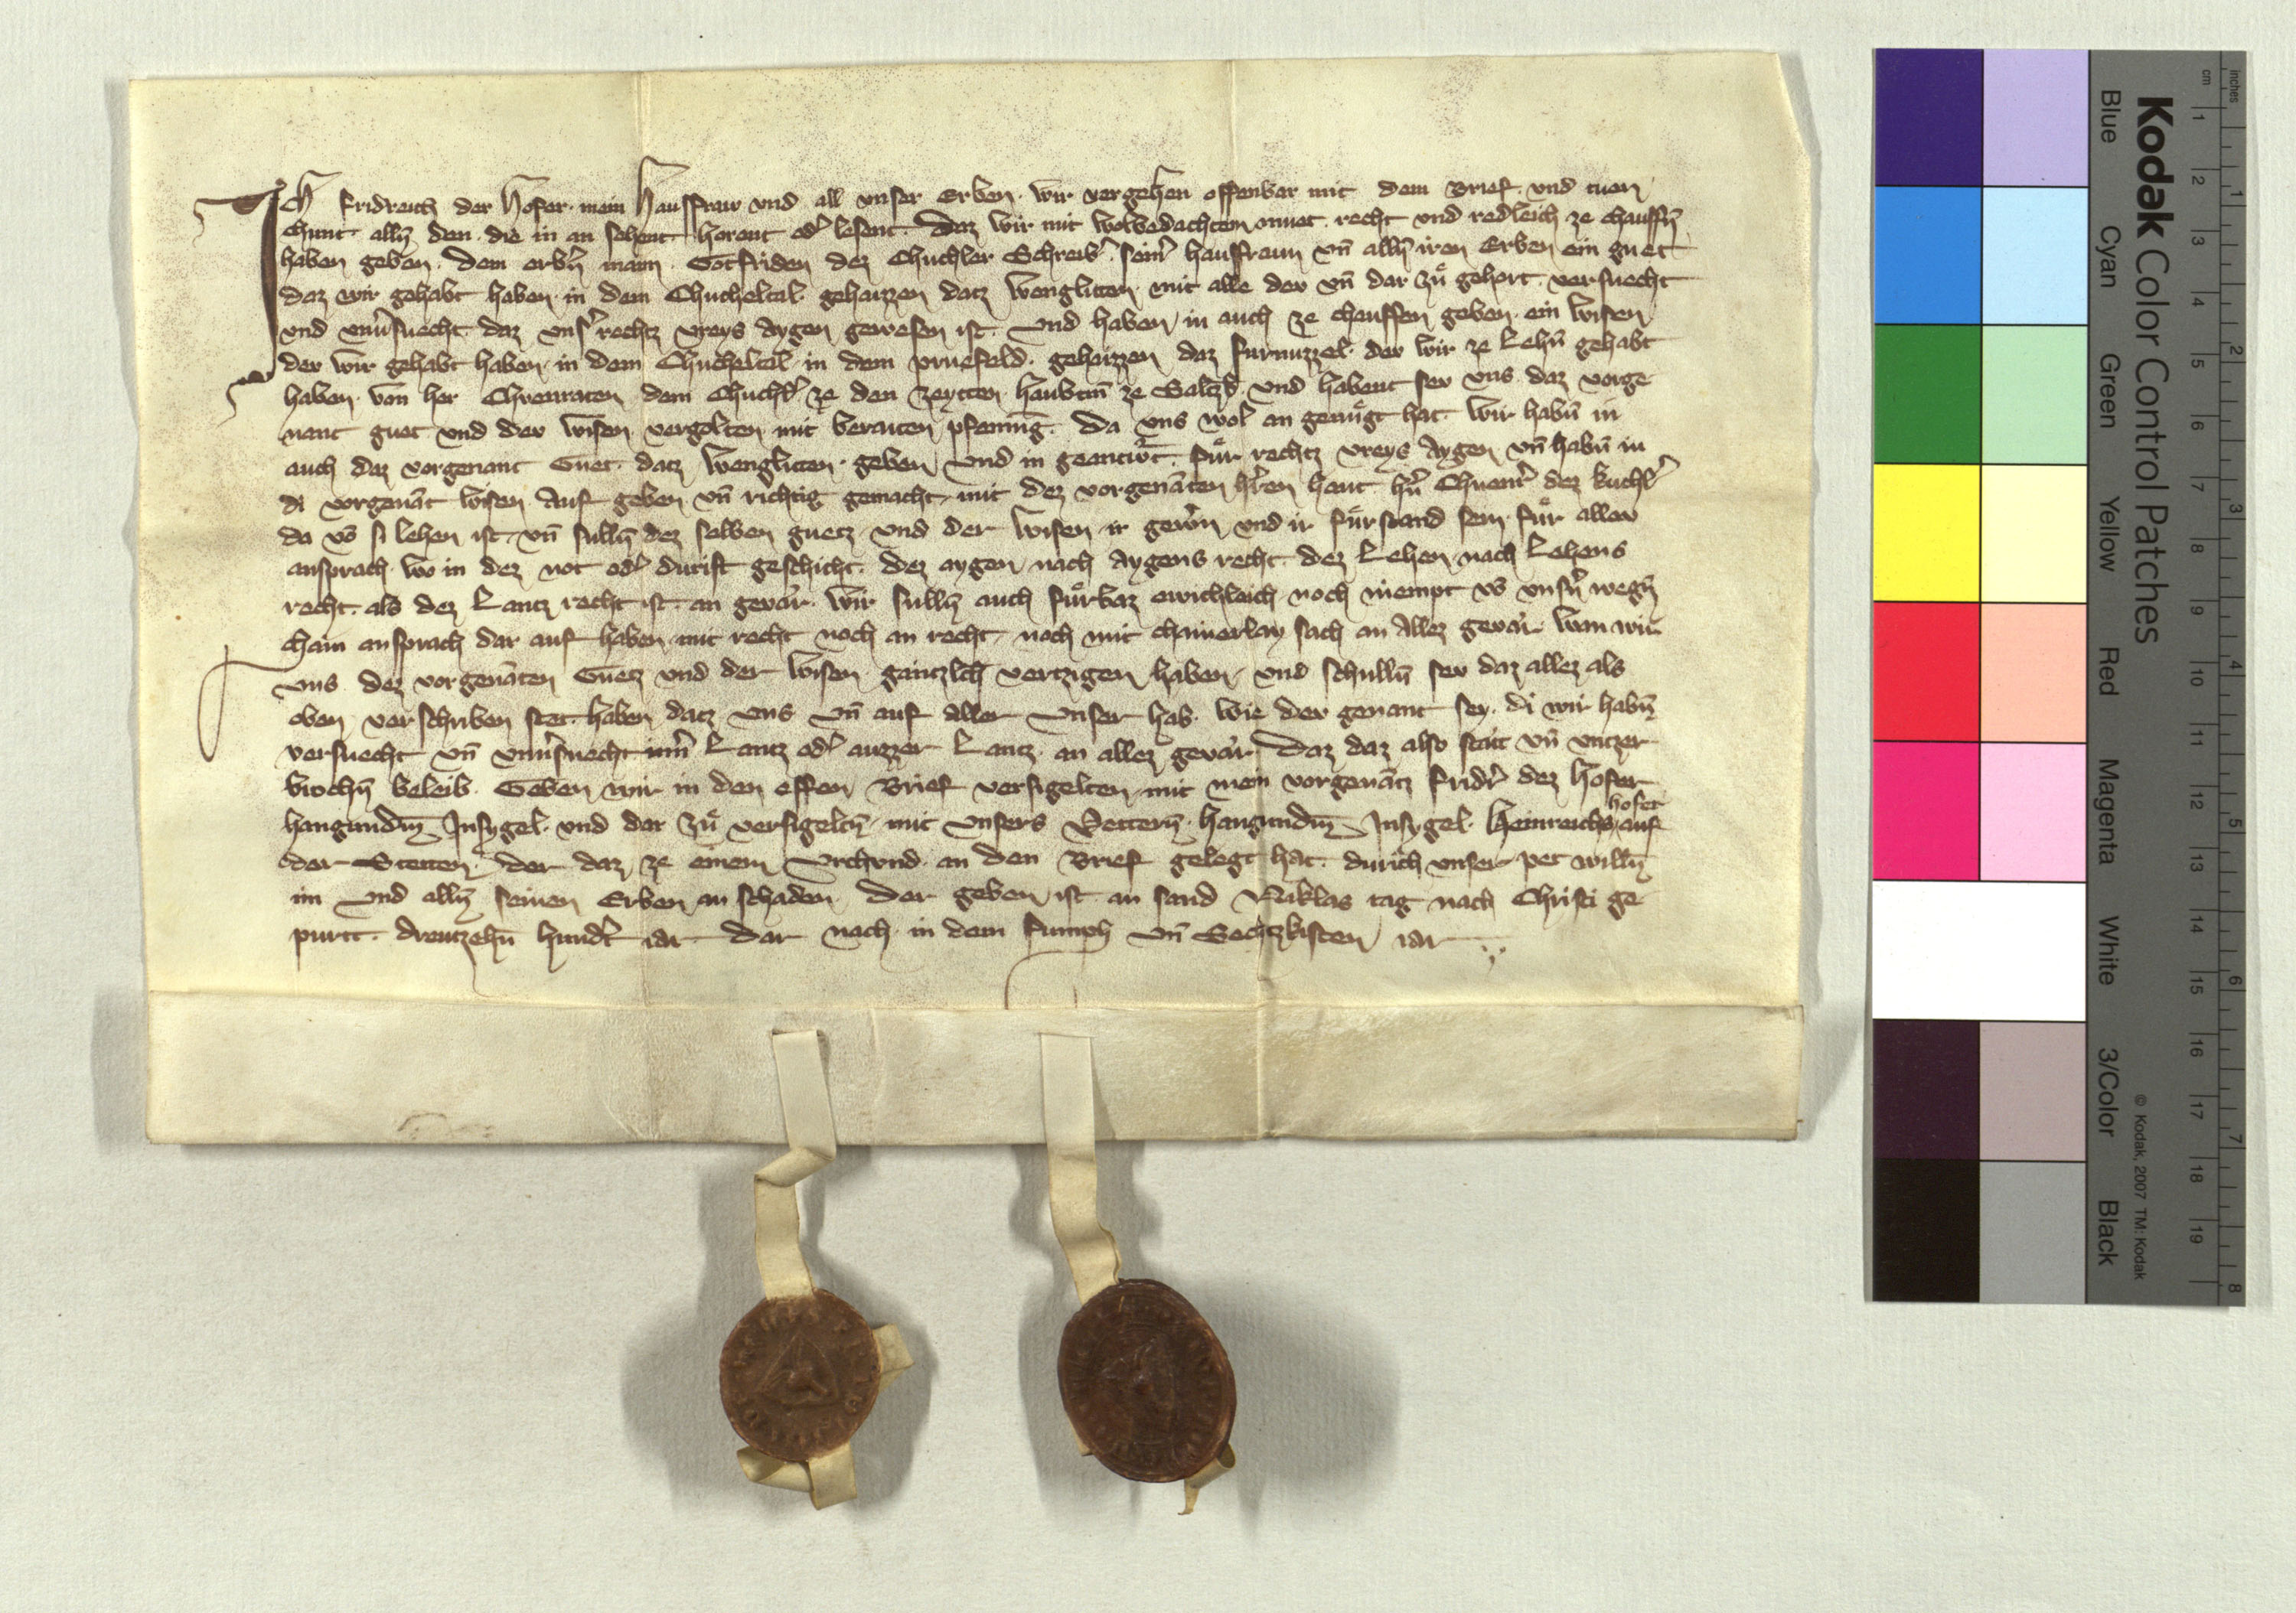 Ich Fridreich der Hofer mein Hausfraw vnd all vnser Erben wir vergehen offenbar mit dem Brief vnd tuen
chunt alln̄ den die in an sehent horent od' lesent daz wir mit wolbedachtem muet recht vnd redleich ze chauffn̄
haben geben dem erbn̄ mann Gotfriden dez Chuchler Schreib' sein' hausfraun vn̄ alln̄ iren Erben ein guet
daz wir gehabt haben in dem Chucheltal gehaizzen datz Wenglitten mit alle dev vn̄ dar zů gehort versuecht
vnd vnu'suecht daz vns' rechtz vreys Aygen gewesen ist Vnd haben in auch ze chauffen geben ein wisen
dev wir gehabt haben in dem Chucheltal in dem vruefeld gehaizzen daz furmuzzel dev wir ze Lehn̄ gehabt
haben von her Chvnraten dem Chuchl' ze den zeytten haubtm̄ ze Saltzb' vnd habent sev vns daz vorge
nant guet vnd dev wisen vergolten mit beraiten pfennīg Da vns wol an genugt hat Wir habn̄ in
auch daz vorgenant Guet datz Wenglitten geben vnd in geantw't für rechtz vreys Aygen vn̄ habn̄ in
di vorgenāt wisen Auf geben vn̄ richtig gemacht mit dez vorgenāten h'ren hant h'n̄ Chvnr' dez kuchl'
da vō si lehen ist vn̄ sulln̄ dez selben guetz vnd der wisen ir gew'n vnd ir fürstand sein für allev
ansprach wo in dez not od' durift geschicht dez aygen nach Aygens recht dez Lehen nach Lehens
recht als dez Lantz recht ist an gevär Wir sulln̄ auch fürbaz ewichleich noch niempt vō vnsn̄ wegn̄
chain ansprach dar auf haben mit recht noch an recht noch mit chainerlay sach an Allez gevär Wan wir
vns dez vorgenāten Guetz vnd der wisen gäntzlch vertzigen haben vnd schulln̄ sev daz allez als
oben verschriben stet haben datz vns vn̄ auf aller vnser hab wie dev genant sey di wir habn̄
versuecht vn̄ vnu'suecht inn̄ Lantz od' auzzer Lantz an allez gevär Daz daz also stät vn̄ vntzer
brochn̄ beleib Geben wir in den offen Brief versigelten mit mein vorgenātz Fridr' dez Hofer
hangundm̄ Insygel vnd dar zů versigeltn̄ mit vnsers Vettern̄ hangundm̄ Insygel Heinreichs hofer auf
der Stetten der daz ze einem vrchvnd an den Brief gelegt hat durich vnser pet willn̄
im vnd alln̄ seinen Erben an schaden Der geben ist an sand Niklas tag nach Christi ge
purtt dreutzehn̄ hund't iar Dar nach in dem fumph vn̄ Sechtzkisten iar
Kodak Color Control Patches
Blue Cyan Green Yellow Red Magenta White 3/Color Black
© Kodak, 2007 TM: Kodak
cm 1 2 3 4 5 6 7 8 9 10 11 12 13 14 15 16 17 18 19
inches 1 2 3 4 5 6 7 8